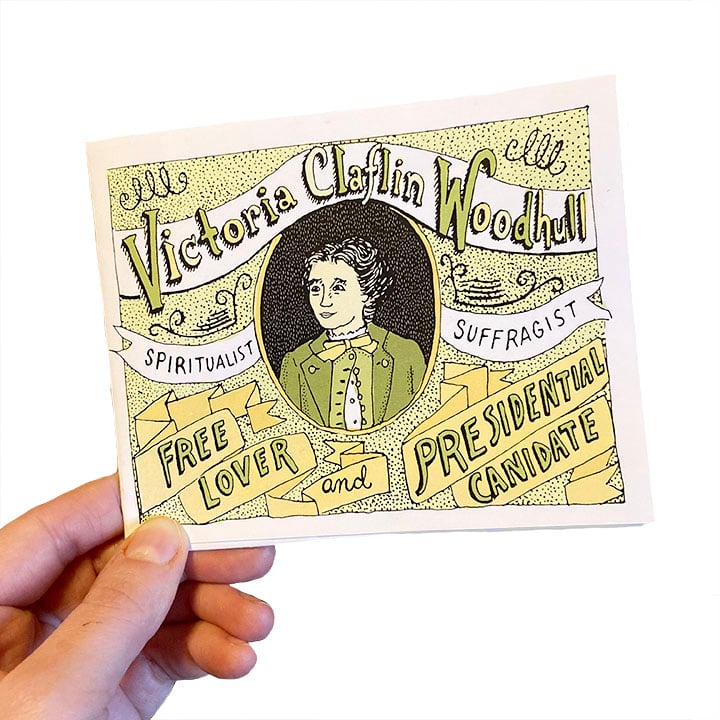 Victoria Claflin Woodhull
SPIRITUALIST
SUFFRAGIST
FREE
LOVER
and
PRESIDENTIAL
CANIDATE